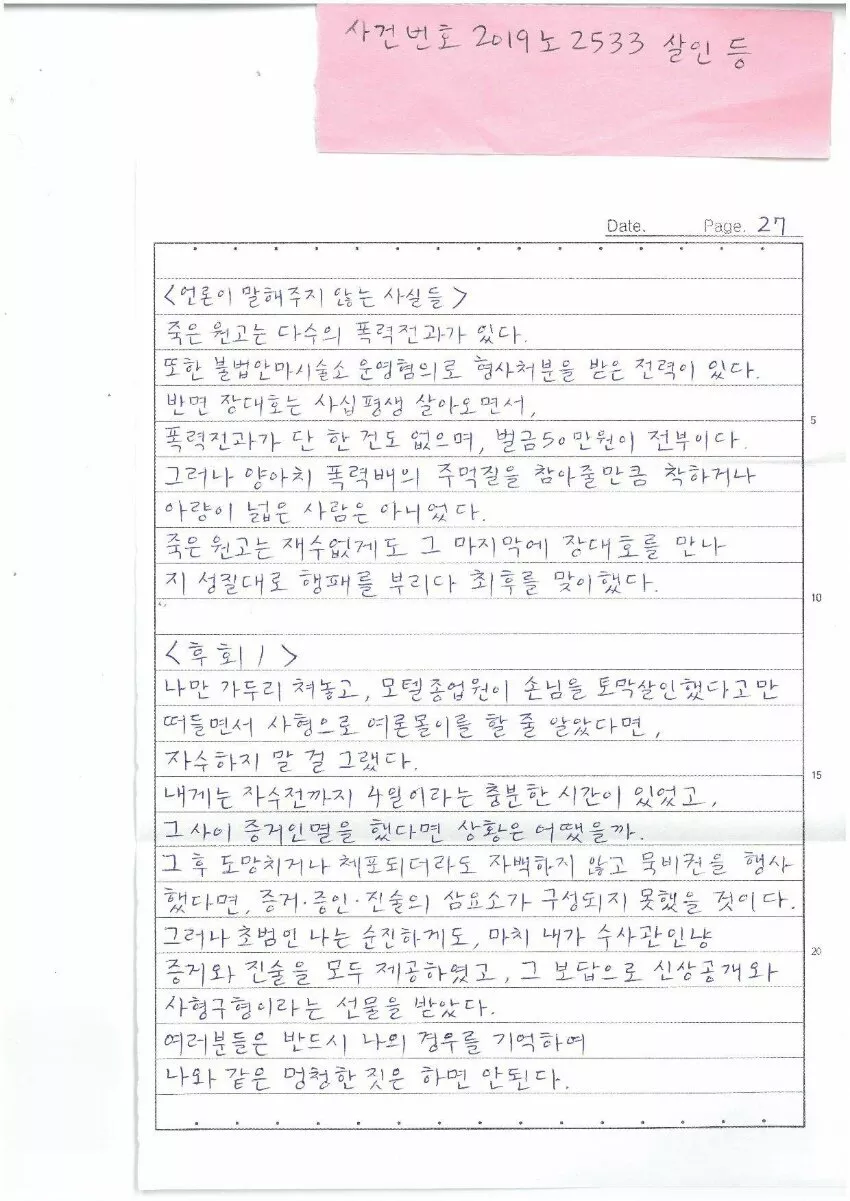 사건번호 2019노2533 살인 등
Date. Page. 27
<언론이 말해주지 않는 사실들>
죽은 원고는 다수의 폭력전과가 있다.
또한 불법안마시술소 운영혐의로 형사처분을 받은 전력이 있다.
반면 장대호는 사십평생 살아오면서,
5
폭력전과가 단 한 건도 없으며, 벌금50만원이 전부이다.
그러나 양아치 폭력배의 주먹질을 참아줄만큼 착하거나
아량이 넓은 사람은 아니었다.
죽은 원고는 재수없게도 그 마지막에 장대호를 만나
지 성질대로 행패를 부리다 최후를 맞이했다.
10
<후회 1>
나만 가두리 쳐놓고, 모텔종업원이 손님을 토막살인했다고만
떠들면서 사형으로 여론몰이를 할 줄 알았다면,
자수하지 말 걸 그랬다.
15
내게는 자수전까지 4일이라는 충분한 시간이 있었고,
그 사이 증거인멸을 했다면 상황은 어땠을까.
그 후 도망치거나 체포되더라도 자백하지 않고 묵비권을 행사
했다면, 증거·증인·진술의 삼요소가 구성되지 못했을 것이다.
그러나 초범인 나는 순진하게도, 마치 내가 수사관인냥
20
증거와 진술을 모두 제공하였고, 그 보답으로 신상공개와
사형구형이라는 선물을 받았다.
여러분들은 반드시 나의 경우를 기억하여
나와 같은 멍청한 짓은 하면 안된다.